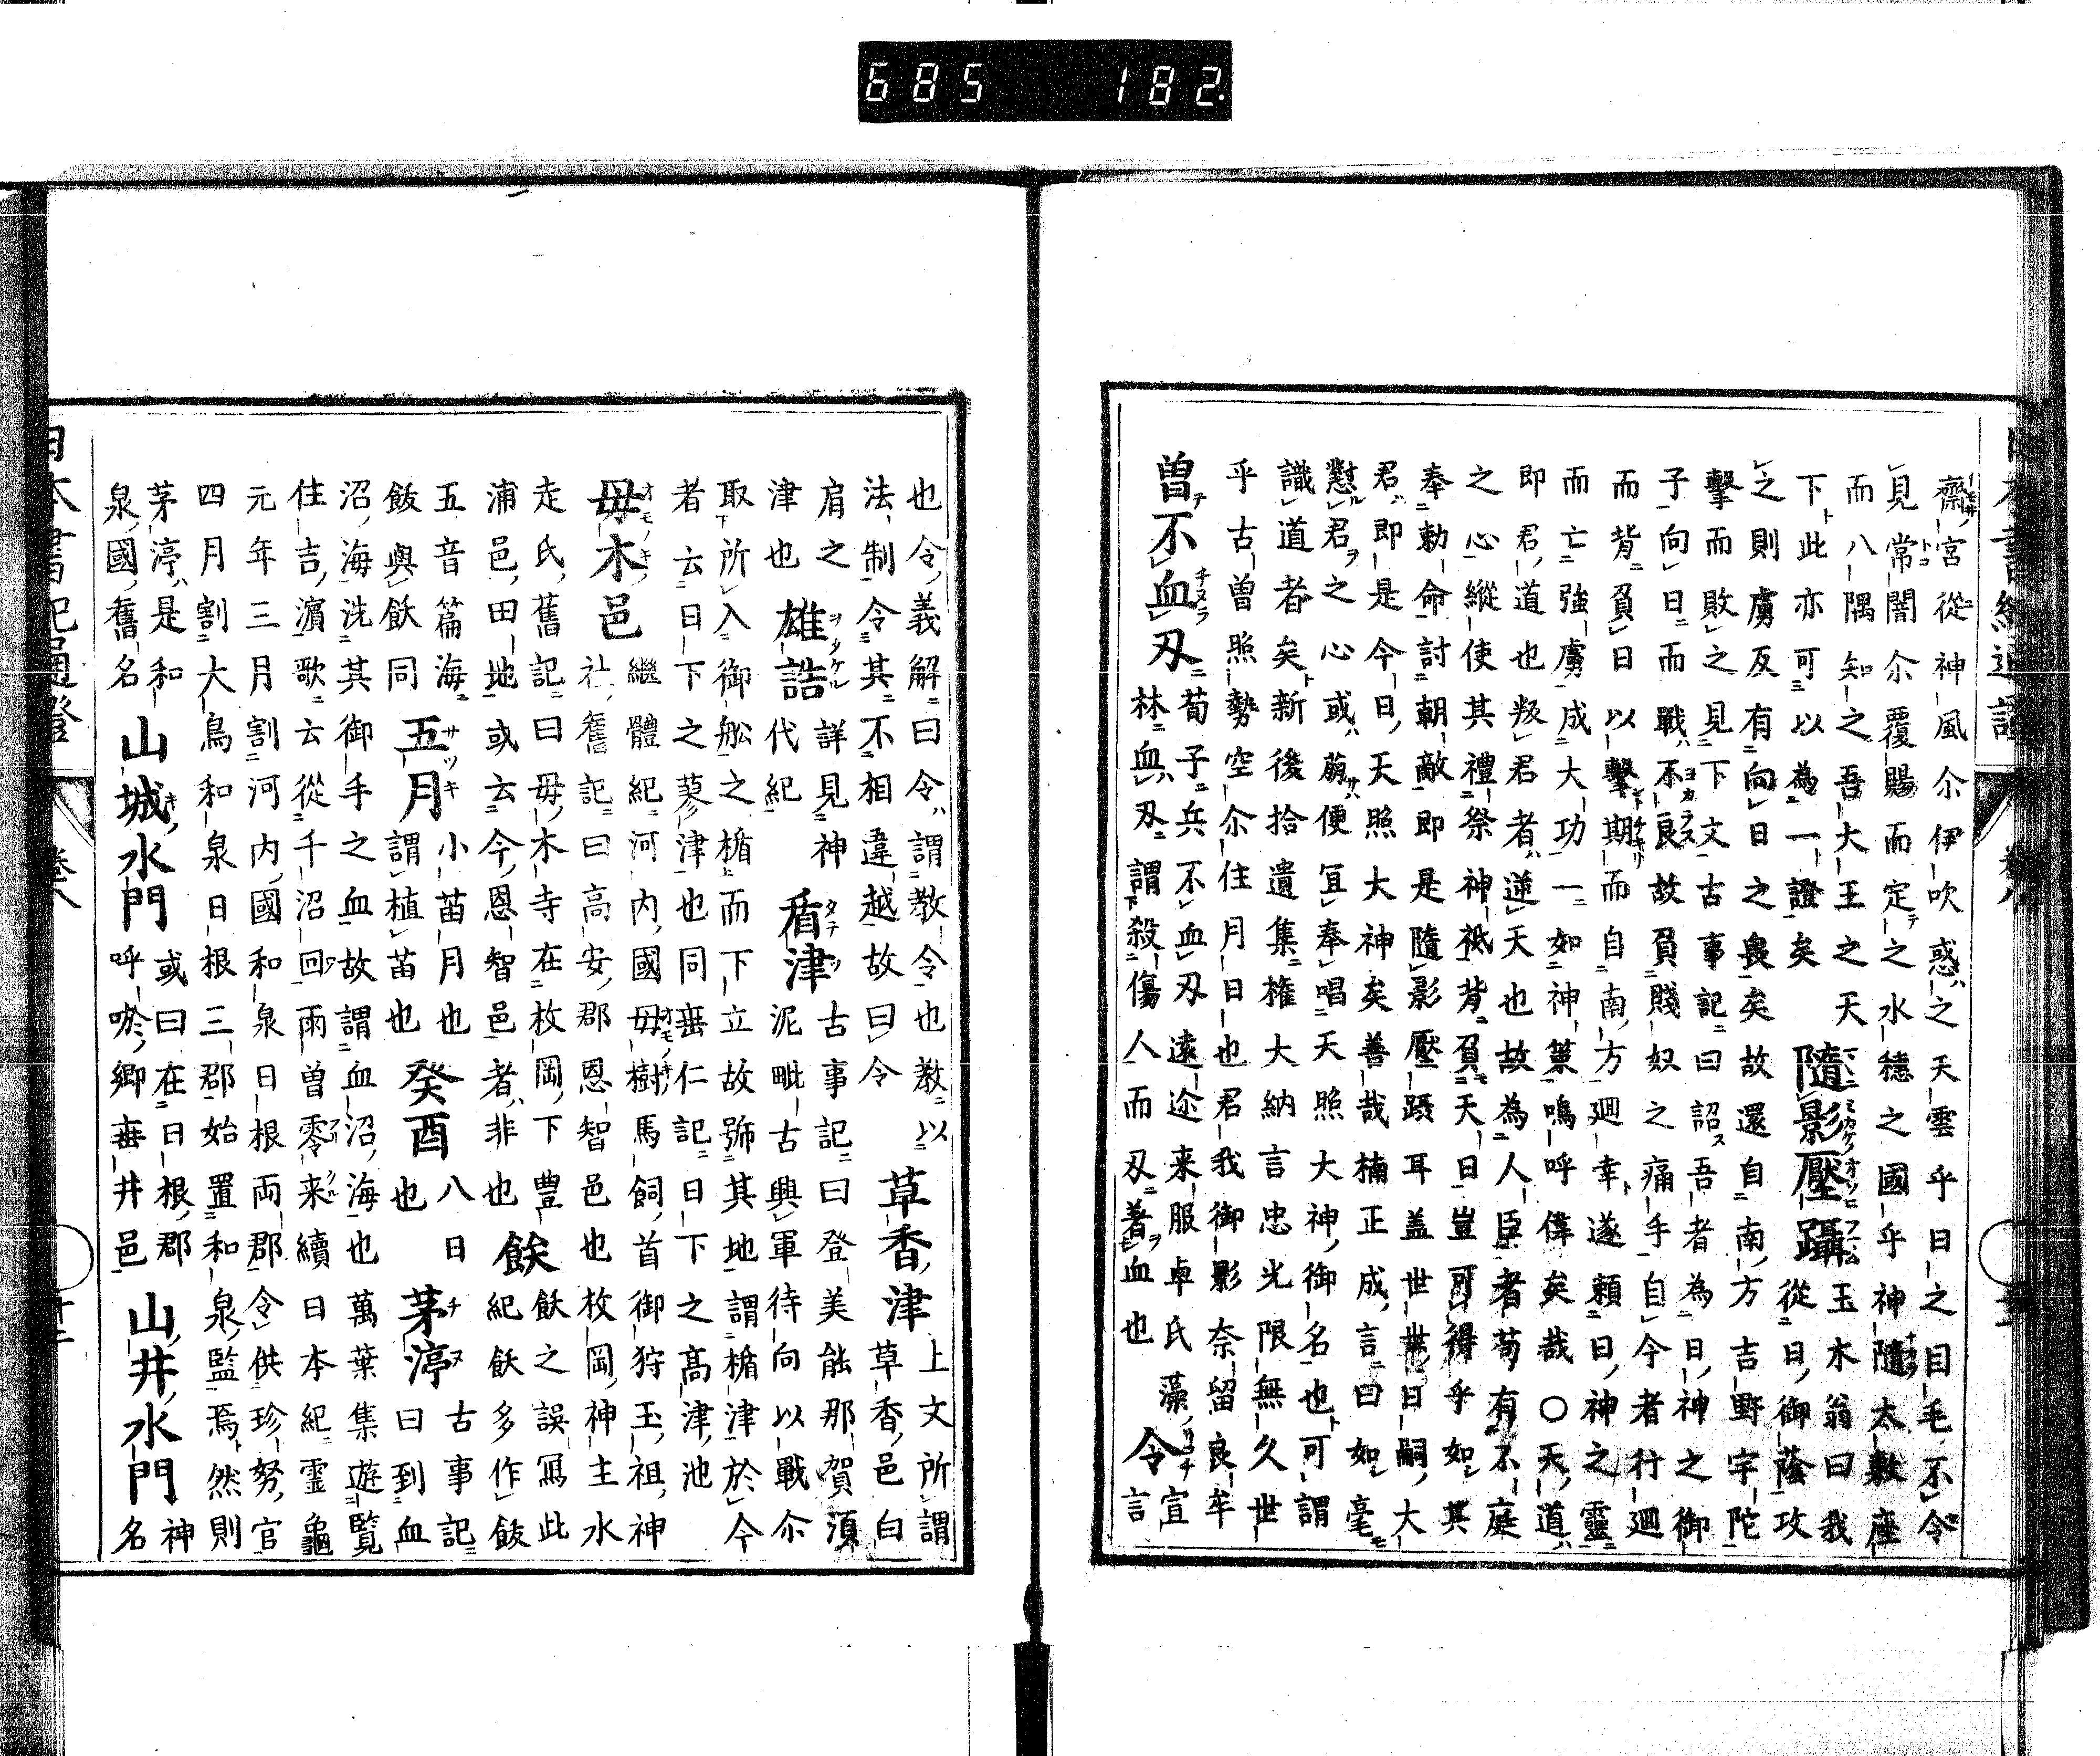 685 182.
齋宮從神風尒伊吹惑之天雲乎日之目毛不令
見常闇尒覆賜而定之水穗之國乎神隨太敷座
而八隅知之吾大王之天 隨影壓躡 玉木翁曰我
下此亦可以為一證矣 從日御蔭攻
之則虜反有向日之喪矣故還自南方吉野宇陀
擊而敗之見下文古事記曰詔吾者為日神之御
子向日而戰不良故負賤奴之痛手自今者行廻
而背負日以擊期而自南方廻幸遂頼日神之靈
而亡強虜成大功一如神策嗚呼偉矣哉〇天道
即君道也叛君者逆天也故為人臣者苟有不庭
之心縱使其禮祭神祗背負天日豈可得乎如其
奉勅命討朝敵即是隨影壓躡耳盖世世日嗣大
君即是今日天照大神矣善哉楠正成言曰如毫
懟君之心或萠便冝奉唱天照大神御名也可謂
識道者矣新後拾遺集権大納言忠光限無久世
乎古曽照勢空尒住月日也君我御影奈留良牟
曽不血刃 荀子兵不血刃遠迩来服卓氏藻林血刃謂殺傷人而刃著血也 令 宣言
也令義解曰令謂教令也教以
法制令其不相違越故曰令 草香津 上文所謂草香邑白
肩之津也 雄誥 詳見神代紀 盾津 古事記曰登美能那賀湏泥毗古興軍待向以戰尒
取所入御舩之楯而下立故號其地謂楯津於今
者云日下之蓼津也同垂仁記日下之髙津池
母木邑 繼體紀河内國母樹馬飼首御狩玉祖神社舊記曰高安郡恩智邑也枚岡神主水
走氏舊記曰母木寺在枚岡下豊
浦邑田地或云今恩智邑者非也 餘 飫之誤冩此紀飫多作飯
五音篇海飯與飫同 五月 小苗月也謂植苗也 癸酉 八日也 茅渟 古事記曰到血
沼海洗其御手之血故謂血沼海也萬葉集遊覧
住吉濵歌云從千沼回雨曽零来續日本紀霊龜
元年三月割河内國和泉日根両郡令供珍努官
四月割大鳥和泉日根三郡始置和泉監焉然則
茅渟是和泉國舊名 山城水門 或曰在日根郡呼唹鄉垂井邑 山井水門 神名
日本書紀通證 卷八 十二